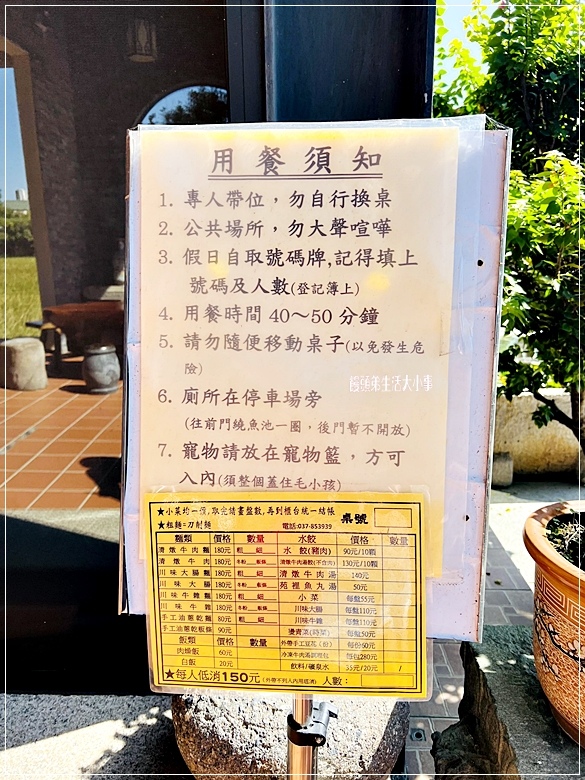 用餐須知
1. 專人帶位，勿自行換桌
2. 公共場所，勿大聲喧嘩
3. 假日自取號碼牌,記得填上
號碼及人數(登記簿上)
4. 用餐時間 40～50 分鐘
5. 請勿隨便移動桌子(以免發生危
險)
6. 廁所在停車場旁
(往前門繞魚池一圈，後門暫不開放)
7. 寵物請放在寵物籃，方可
入內(須整個蓋住毛小孩)
饅頭弟生活大小事
★小菜均一價,取完請畫盤數,再到櫃台統一結帳
★粗麵=刀削麵 電話:037-853939 桌號
麵類 價格 數量 水餃 價格 數量
清燉牛肉麵 180元 粗 細 水 餃(豬肉) 90元/10顆
清燉牛肉 180元 冬粉 板條 130元/10顆
川味大腸麵 180元 粗 細 清燉牛肉湯 140元
川味大腸 180元 冬粉 板條 苑裡魚丸湯 50元
川味牛雜麵 180元 粗 細 小菜 每盤55元
川味牛雜 180元 冬粉 板條 川味大腸 每盤110元
手工油蔥乾麵 80元 粗 細 川味牛雜 每盤110元
手工油蔥乾板條 90元 燙青菜(時菜) 每盤50元
飯類 價格 數量 外帶手工豆花（份） 每份60元
肉燥飯 60元 冷凍牛肉湯調理包 每包280元
白飯 20元 飲料/礦泉水 35元/20元 /
★每人低消150元(外帶不列入內用底消) 人數：